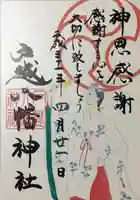 神恩感謝
感謝する心を
大切に致しましょう
平成三十五年四月廿一日
戸越
八幡神社